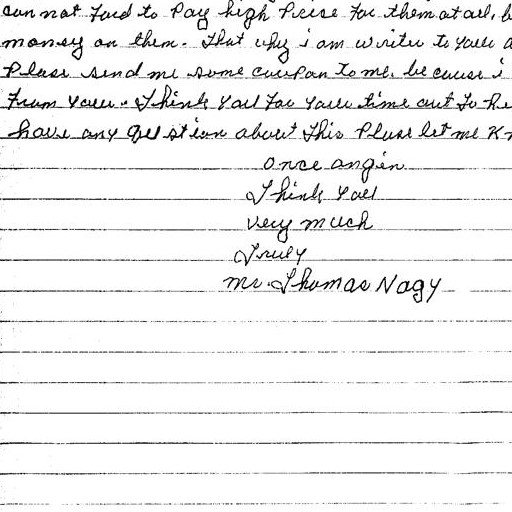 can not ford to pay high Price for them at all, b
money on them. That why i am writer to youu a
Pleas send me some coupon to me. because i
from youu. Think you for youu time out to he
have any question about this Please let me Kn
once angin
Think you
very much
Truly
mr. Thomas Nagy